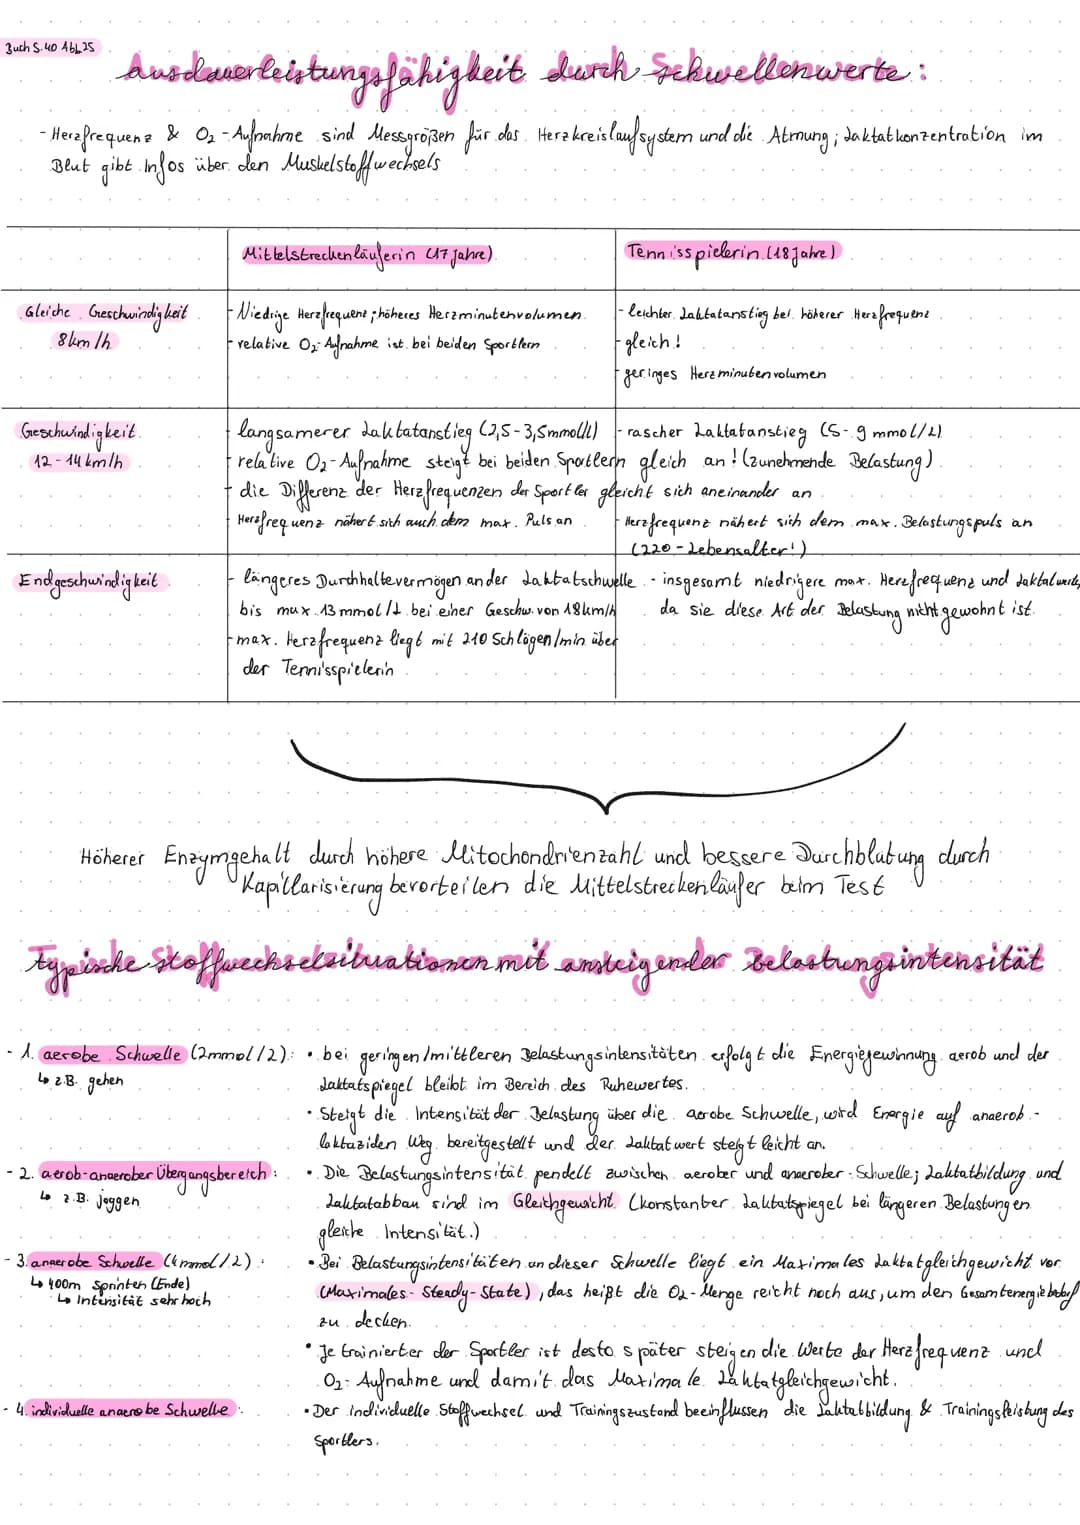 Buch S.40 Abb.25
Ausdauerleistungsfähigkeit durch Schwellenwerte:
- Herzfrequenz & O₂-Aufnahme sind Messgrößen für das Herzkreislaufsystem und die Atmung; Laktatkonzentration im
Blut gibt Infos über den Muskelstoffwechsels
Mittelstreckenläuferin (17 Jahre)
Tennisspielerin (18 Jahre)
Gleiche Geschwindigkeit
8km/h
- Niedrige Herzfrequenz; höheres Herzminutenvolumen
- relative O₂-Aufnahme ist bei beiden Sportlern
- leichter Laktatanstieg bei höherer Herzfrequenz
- gleich!
- geringes Herzminutenvolumen
Geschwindigkeit
12-14 km/h
- langsamerer Laktatanstieg (2,5-3,5mmol/l)
- rascher Laktatanstieg (5-9 mmol/L)
- relative O₂-Aufnahme steigt bei beiden Sportlern gleich an! (zunehmende Belastung)
- die Differenz der Herzfrequenzen der Sportler gleicht sich aneinander an
- Herzfrequenz nähert sich auch dem max. Puls an
- Herzfrequenz nähert sich dem max. Belastungspuls an
(220-Lebensalter!)
Endgeschwindigkeit
- längeres Durchhaltevermögen an der Laktatschwelle
bis max. 13 mmol/L bei einer Geschw. von 18km/h
- max. Herzfrequenz liegt mit 210 Schlägen/min über
der Tennisspielerin
- insgesamt niedrigere max. Herzfrequenz und Laktatwerte,
da sie diese Art der Belastung nicht gewohnt ist.
Höherer Enzymgehalt durch höhere Mitochondrienzahl und bessere Durchblutung durch
Kapillarisierung bevorteilen die Mittelstreckenläufer beim Test
typische Stoffwechselsituationen mit ansteigender Belastungsintensität
- 1. aerobe Schwelle (2mmol/L):
↳ z.B. gehen
• bei geringen/mittleren Belastungsintensitäten erfolgt die Energiegewinnung aerob und der
Laktatspiegel bleibt im Bereich des Ruhewertes.
• Steigt die Intensität der Belastung über die aerobe Schwelle, wird Energie auf anaerob-
laktaziden Weg bereitgestellt und der Laktatwert steigt leicht an.
- 2. aerob-anaerober Übergangsbereich:
↳ z.B. joggen
• Die Belastungsintensität pendelt zwischen aerober und anaerober Schwelle; Laktatbildung und
Laktatabbau sind im Gleichgewicht (konstanter Laktatspiegel bei längeren Belastungen
gleiche Intensität.)
- 3. anaerobe Schwelle (4mmol/L):
↳ 400m Sprinten (Ende)
↳ Intensität sehr hoch
• Bei Belastungsintensitäten an dieser Schwelle liegt ein Maximales Laktatgleichgewicht vor
(Maximales-Steady-State), das heißt die O₂-Menge reicht noch aus, um den Gesamtenergiebedarf
zu decken.
• Je trainierter der Sportler ist desto später steigen die Werte der Herzfrequenz und
O₂-Aufnahme und damit das Maximale Laktatgleichgewicht.
- 4. individuelle anaerobe Schwelle:
• Der individuelle Stoffwechsel und Trainingszustand beeinflussen die Laktatbildung & Trainingsleistung des
Sportlers.